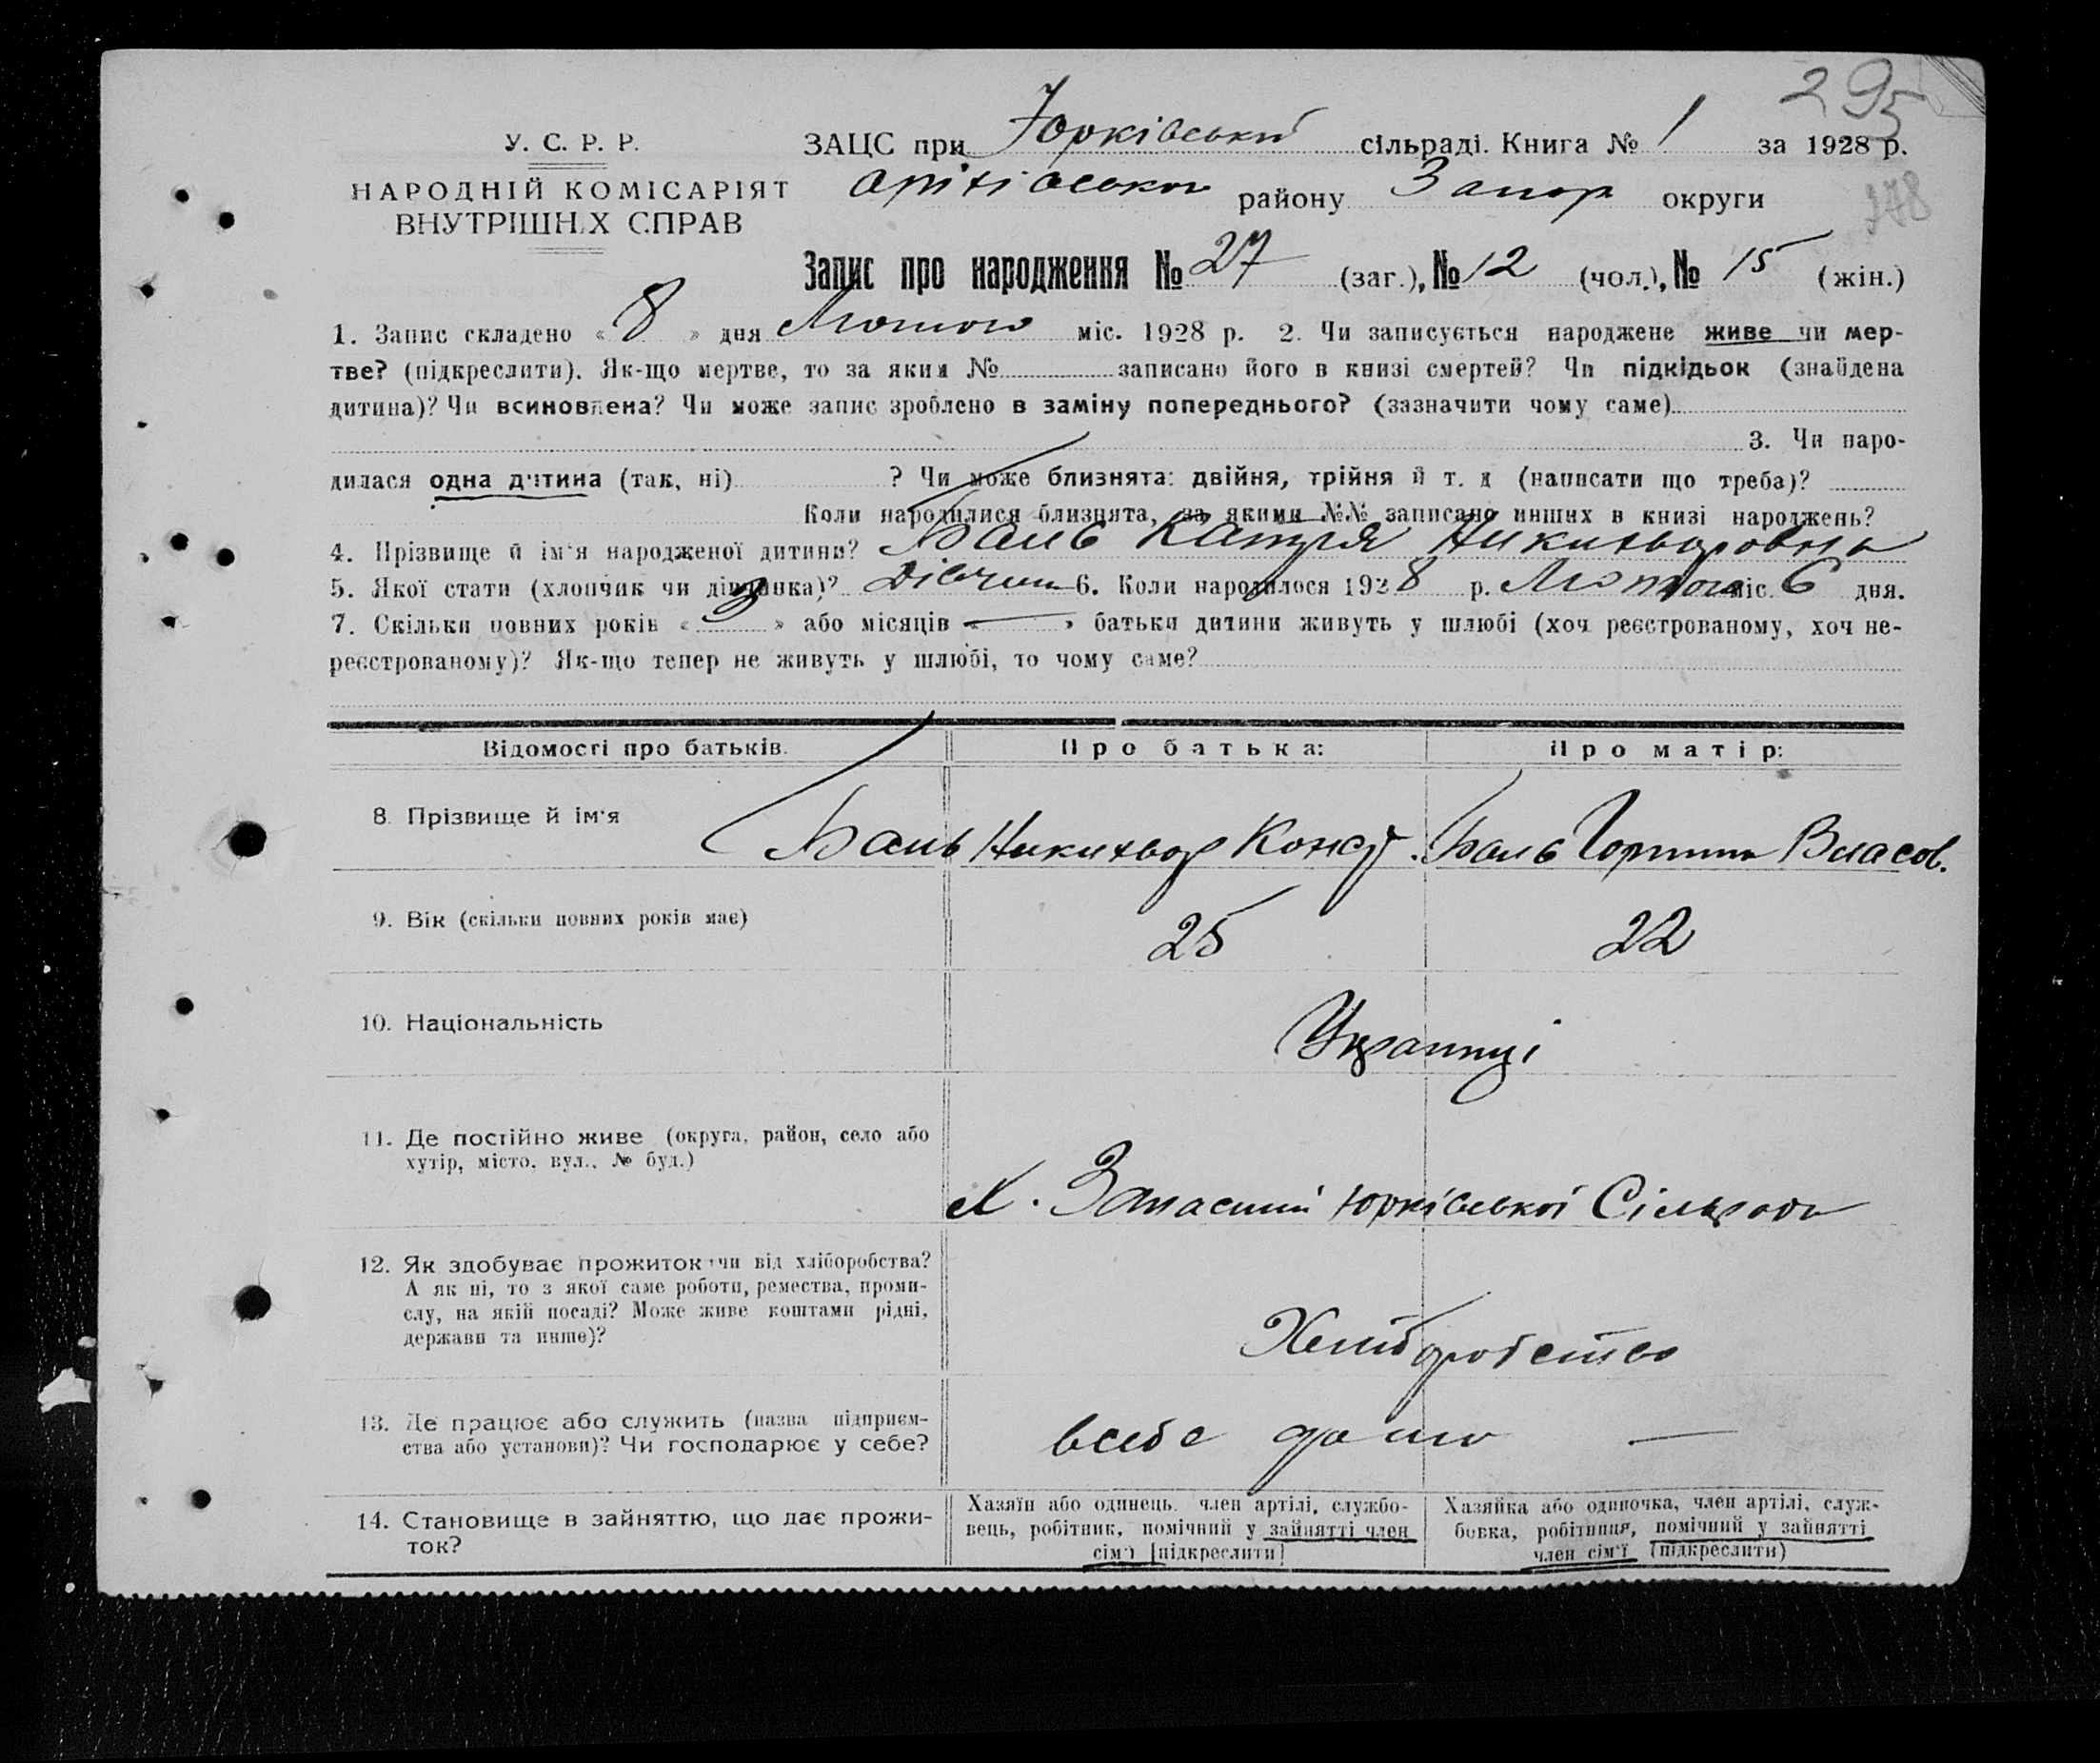 295
У. С. Р. Р.
НАРОДНІЙ КОМІСАРІЯТ
ВНУТРІШН.Х СПРАВ
ЗАЦС при Юрківській сільраді. Книга № 1 за 1928 р.
Оріхівського району Запор округи
178
Запис про народження № 27 (заг.), № 12 (чол.), № 15 (жін.)
1. Запис складено « 8 » дня Лютого міс. 1928 р. 2. Чи записується народжене живе чи мер-
тве? (підкреслити). Як-що мертве, то за яким № записано його в книзі смертей? Чи підкідьок (знайдена
дитина)? Чи всиновлена? Чи може запис зроблено в заміну попереднього? (зазначити чому саме)
3. Чи наро-
дилася одна дитина (так, ні) ? Чи може близнята: двійня, трійня й т. д (написати що треба)?
Коли народилися близнята, за якими №№ записано инших в книзі народжень?
4. Прізвище й ім'я народженої дитини? Баль Катря Никихворовна
5. Якої стати (хлопчик чи дівчинка)? Дівчин 6. Коли народилося 1928 р. Лютого міс. 6 дня.
7. Скільки повних років « 3 » або місяців « — » батьки дитини живуть у шлюбі (хоч реєстрованому, хоч не-
реєстрованому)? Як-що тепер не живуть у шлюбі, то чому саме?
Відомості про батьків. Про батька: Про матір:
8. Прізвище й ім'я Баль Никихвор Конд. Баль Горпина Власов.
9. Вік (скільки повних років має) 25 22
10. Національність Українці
11. Де постійно живе (округа, район, село або
хутір, місто, вул., № буд.)
х. Запасний Юрківської Сільради
12. Як здобуває прожиток чи від хліборобства?
А як ні, то з якої саме роботи, ремества, проми-
слу, на якій посаді? Може живе коштами рідні,
держави та инше)?
Хліборобство
13. Де працює або служить (назва підприєм-
ства або установи)? Чи господарює у себе?
всебе дома —
14. Становище в зайняттю, що дає прожи-
ток?
Хазяїн або одинець, член артілі, службо-
вець, робітник, помічний у зайнятті член
сім'ї [підкреслити]
Хазяйка або одиночка, член артілі, служ-
бовка, робітниця, помічний у зайнятті
член сім'ї (підкреслити)